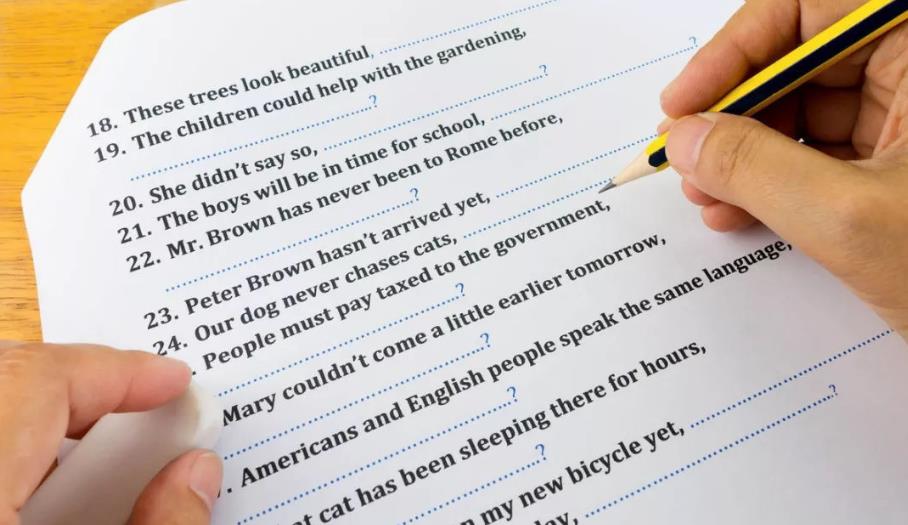 18. These trees look beautiful, ..............................
19. The children could help with the gardening,
..............................?
20. She didn't say so, ..............................?
21. The boys will be in time for school, ..............................?
22. Mr. Brown has never been to Rome before,
..............................?
23. Peter Brown hasn't arrived yet, ..............................
24. Our dog never chases cats, ..............................
. People must pay taxed to the government,
..............................?
Mary couldn't come a little earlier tomorrow,
..............................?
. Americans and English people speak the same language,
..............................?
cat has been sleeping there for hours,
..............................?
my new bicycle yet, ..............................
..............................?